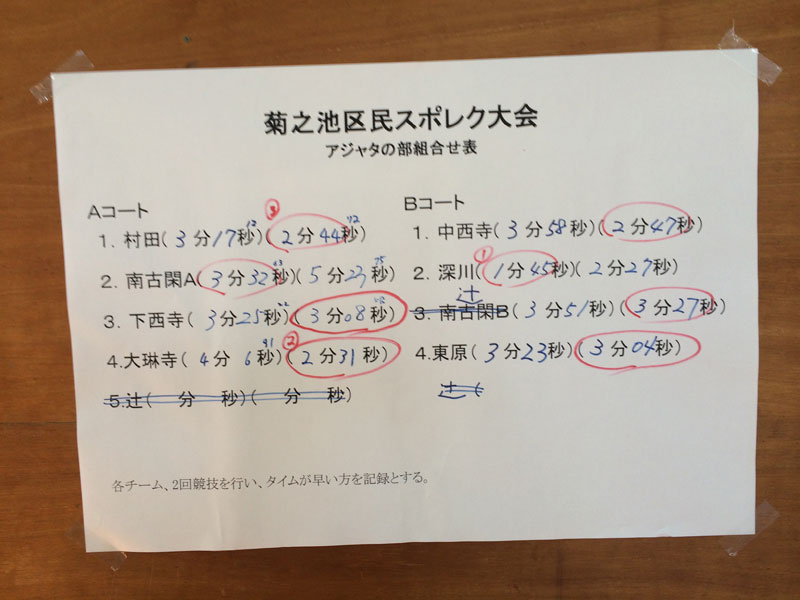 菊之池区民スポレク大会
アジャタの部組合せ表
Aコート
③
1. 村田(3分17秒)(2分44秒)
2. 南古閑A(3分32秒)(5分23秒)
3. 下西寺(3分25秒)(3分08秒)
②
4.大琳寺(4分6秒)(2分31秒)
5.辻(分秒)(分秒)
Bコート
1. 中西寺(3分58秒)(2分47秒)
①
2. 深川(1分45秒)(2分27秒)
辻
3. 南古閑B(3分51秒)(3分27秒)
4.東原(3分23秒)(3分04秒)
辻(
各チーム、2回競技を行い、タイムが早い方を記録とする。